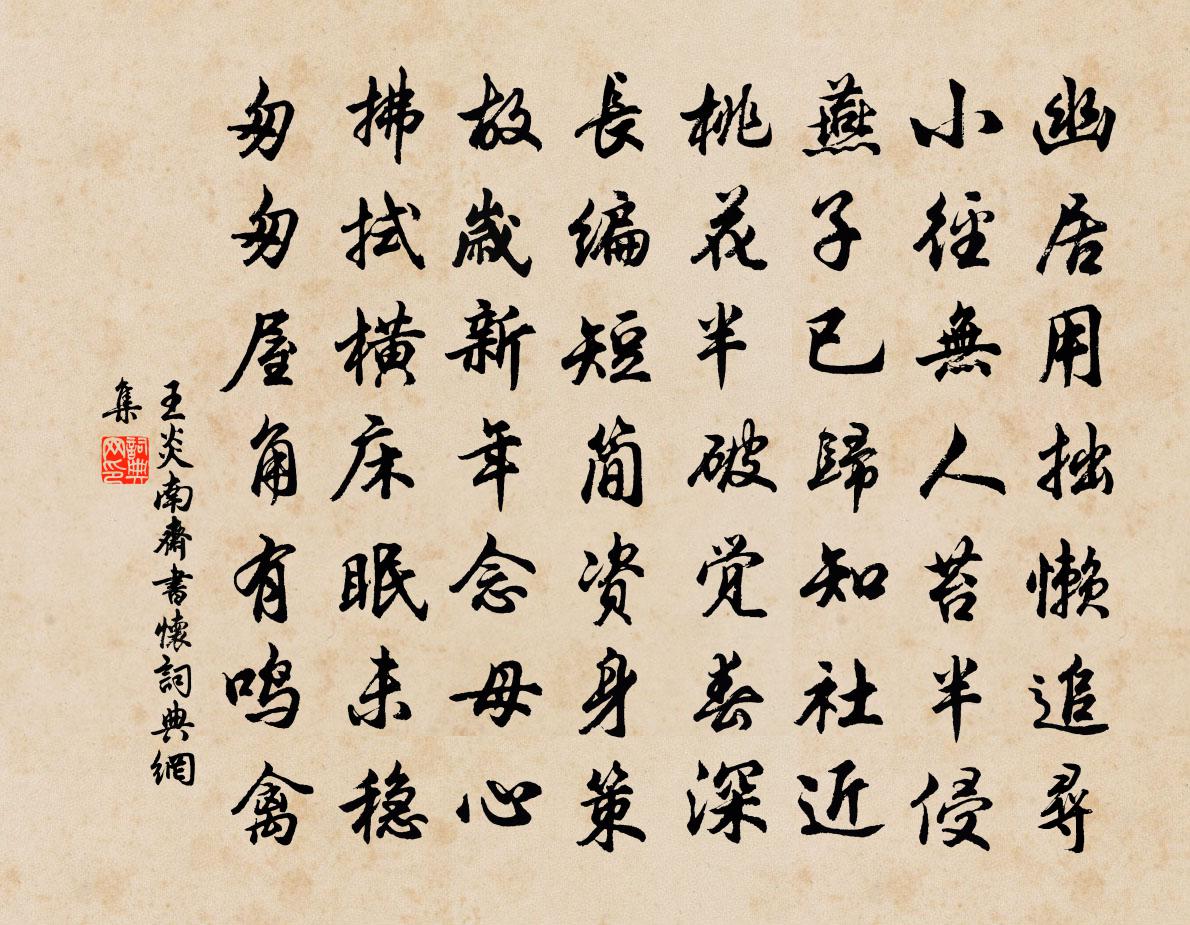 幽居用拙懶追尋
小徑無人苔半侵
燕子已歸知社近
桃花半破覺春深
長編短简資身策
故歲新年念母心
拂拭横床眠未稳
匆匆屋角有鳴禽
王炎南齋書懷詞典網
集
詞典网印